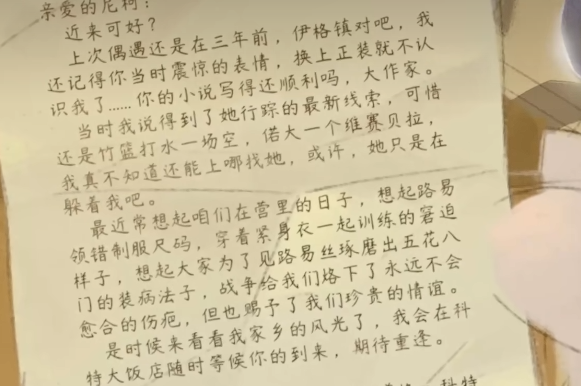 亲爱的尼柯：
近来可好？
上次偶遇还是在三年前，伊格镇对吧，我
还记得你当时震惊的表情，换上正装就不认
识我了……你的小说写得还顺利吗，大作家。
当时我说得到了她行踪的最新线索，可惜
还是竹篮打水一场空，偌大一个维赛贝拉，
我真不知道还能上哪找她，或许，她只是在
躲着我吧。
最近常想起咱们在营里的日子，想起路易
领错制服尺码，穿着紧身衣一起训练的窘迫
样子，想起大家为了见路易丝琢磨出五花八
门的装病法子，战争给我们烙下了永远不会
愈合的伤疤，但也赐予了我们珍贵的情谊。
是时候来看看我家乡的风光了，我会在科
特大饭店随时等候你的到来，期待重逢。